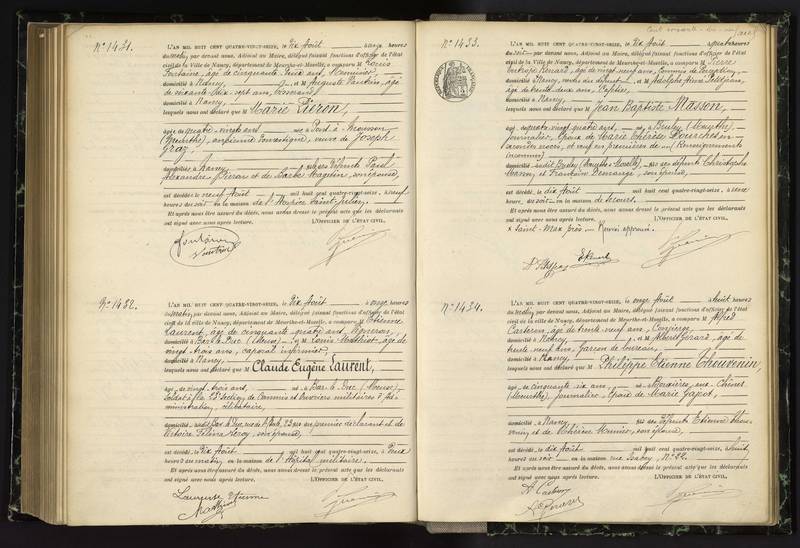 N° 1431.
L'AN MIL HUIT CENT QUATRE-VINGT-SEIZE, le Dix Août à onze heures
du matin, par devant nous, Adjoint au Maire, délégué faisant fonctions d'officier de l'état
civil de la Ville de Nancy, département de Meurthe-et-Moselle, a comparu M Louis
Fontaine, âgé de cinquante deux ans, Menuisier,
domicilié à Nancy, et M Auguste Vautrin, âgé
de soixante dix sept ans,
domicilié à Nancy,
lesquels nous ont déclaré que M Marie Pieron,
âgée de quatre-vingts ans née à Pont à Mousson
(Meurthe), ancienne domestique, veuve de Joseph
Graz,
domiciliée à Nancy, fille des défunts Paul
Alexandre Pieron et de Barbe Magotin, son épouse,
est décédée le neuf Août mil huit cent quatre-vingt-seize, à neuf
heures du soir en la maison de l'Hospice Saint-Julien.
Et après nous être assuré du décès, nous avons dressé le présent acte que les déclarants
ont signé avec nous après lecture. L'OFFICIER DE L'ÉTAT CIVIL,
Fontaine
Vautrin
N° 1432.
L'AN MIL HUIT CENT QUATRE-VINGT-SEIZE, le Dix Août à onze heures
du matin, par devant nous, Adjoint au Maire, délégué faisant fonctions d'officier de l'état
civil de la ville de Nancy, département de Meurthe-et-Moselle, a comparu M Etienne
Laurent, âgé de cinquante quatre ans, Vigneron,
domicilié à Bar le Duc (Meuse), et M Louis Mathiot, âgé de
vingt trois ans, caporal infirmier,
domicilié à Nancy,
lesquels nous ont déclaré que M Claude Eugène Laurent,
âgé de vingt trois ans, né à Bar le Duc (Meuse),
Soldat à la 23e Section de Commis et Ouvriers militaires d'Ad-
ministration, célibataire,
domicilié fils du premier déclarant et de
Victoire Leroy, son épouse,
est décédé le Dix Août mil huit cent quatre-vingt-seize, à Deux
heures du matin, en la maison de l'Hôpital militaire.
Et après nous être assuré du décès, nous avons dressé le présent acte que les déclarants
ont signé avec nous après lecture. L'OFFICIER DE L'ÉTAT CIVIL,
Laurent Etienne
N° 1433.
L'AN MIL HUIT CENT QUATRE-VINGT-SEIZE, le Dix Août à quatre heures
du soir, par devant nous, Adjoint au Maire, délégué faisant fonctions d'officier de l'état
civil de la Ville de Nancy, département de Meurthe-et-Moselle, a comparu M Pierre
Renard, âgé de vingt neuf ans, Commis de
domicilié à Nancy, et M Adolphe
âgé de trente deux ans,
domicilié à Nancy,
lesquels nous ont déclaré que M Jean Baptiste Masson,
âgé de quatre vingt quatre ans, né à Bruley (Meurthe),
journalier, Époux de Marie Thérèse en
secondes noces, et veuf en premières de (Renseignements
inconnus)
domicilié fils des défunts Christophe
Masson, et Françoise Demange, son épouse,
est décédé le dix Août mil huit cent quatre-vingt-seize, à onze
heures du en la maison de Secours.
Et après nous être assuré du décès, nous avons dressé le présent acte que les déclarants
ont signé avec nous après lecture. L'OFFICIER DE L'ÉTAT CIVIL,
Saint-Max près
N° 1434.
L'AN MIL HUIT CENT QUATRE-VINGT-SEIZE, le onze Août à huit heures
du matin, par devant nous, Adjoint au Maire, délégué faisant fonctions d'officier de l'état
civil de la ville de Nancy, département de Meurthe-et-Moselle, a comparu M Alfred
Casteran, âgé de trente neuf ans, Concierge,
domicilié à Nancy, et M Albert Girard, âgé de
trente neuf ans, Garçon de bureau,
domicilié à Nancy,
lesquels nous ont déclaré que M Philippe Etienne Thouvenin,
âgé de cinquante six ans, né à Bouxières aux Chênes
(Meurthe), Journalier, Époux de Marie Gazot,
domicilié à Nancy, fils des défunts Etienne Thou-
venin, et de Thérèse Munier, son épouse,
est décédé le dix Août mil huit cent quatre-vingt-seize, à huit
heures du soir en la maison rue Isabey N° 92.
Et après nous être assuré du décès, nous avons dressé le présent acte que les déclarants
ont signé avec nous après lecture. L'OFFICIER DE L'ÉTAT CIVIL,